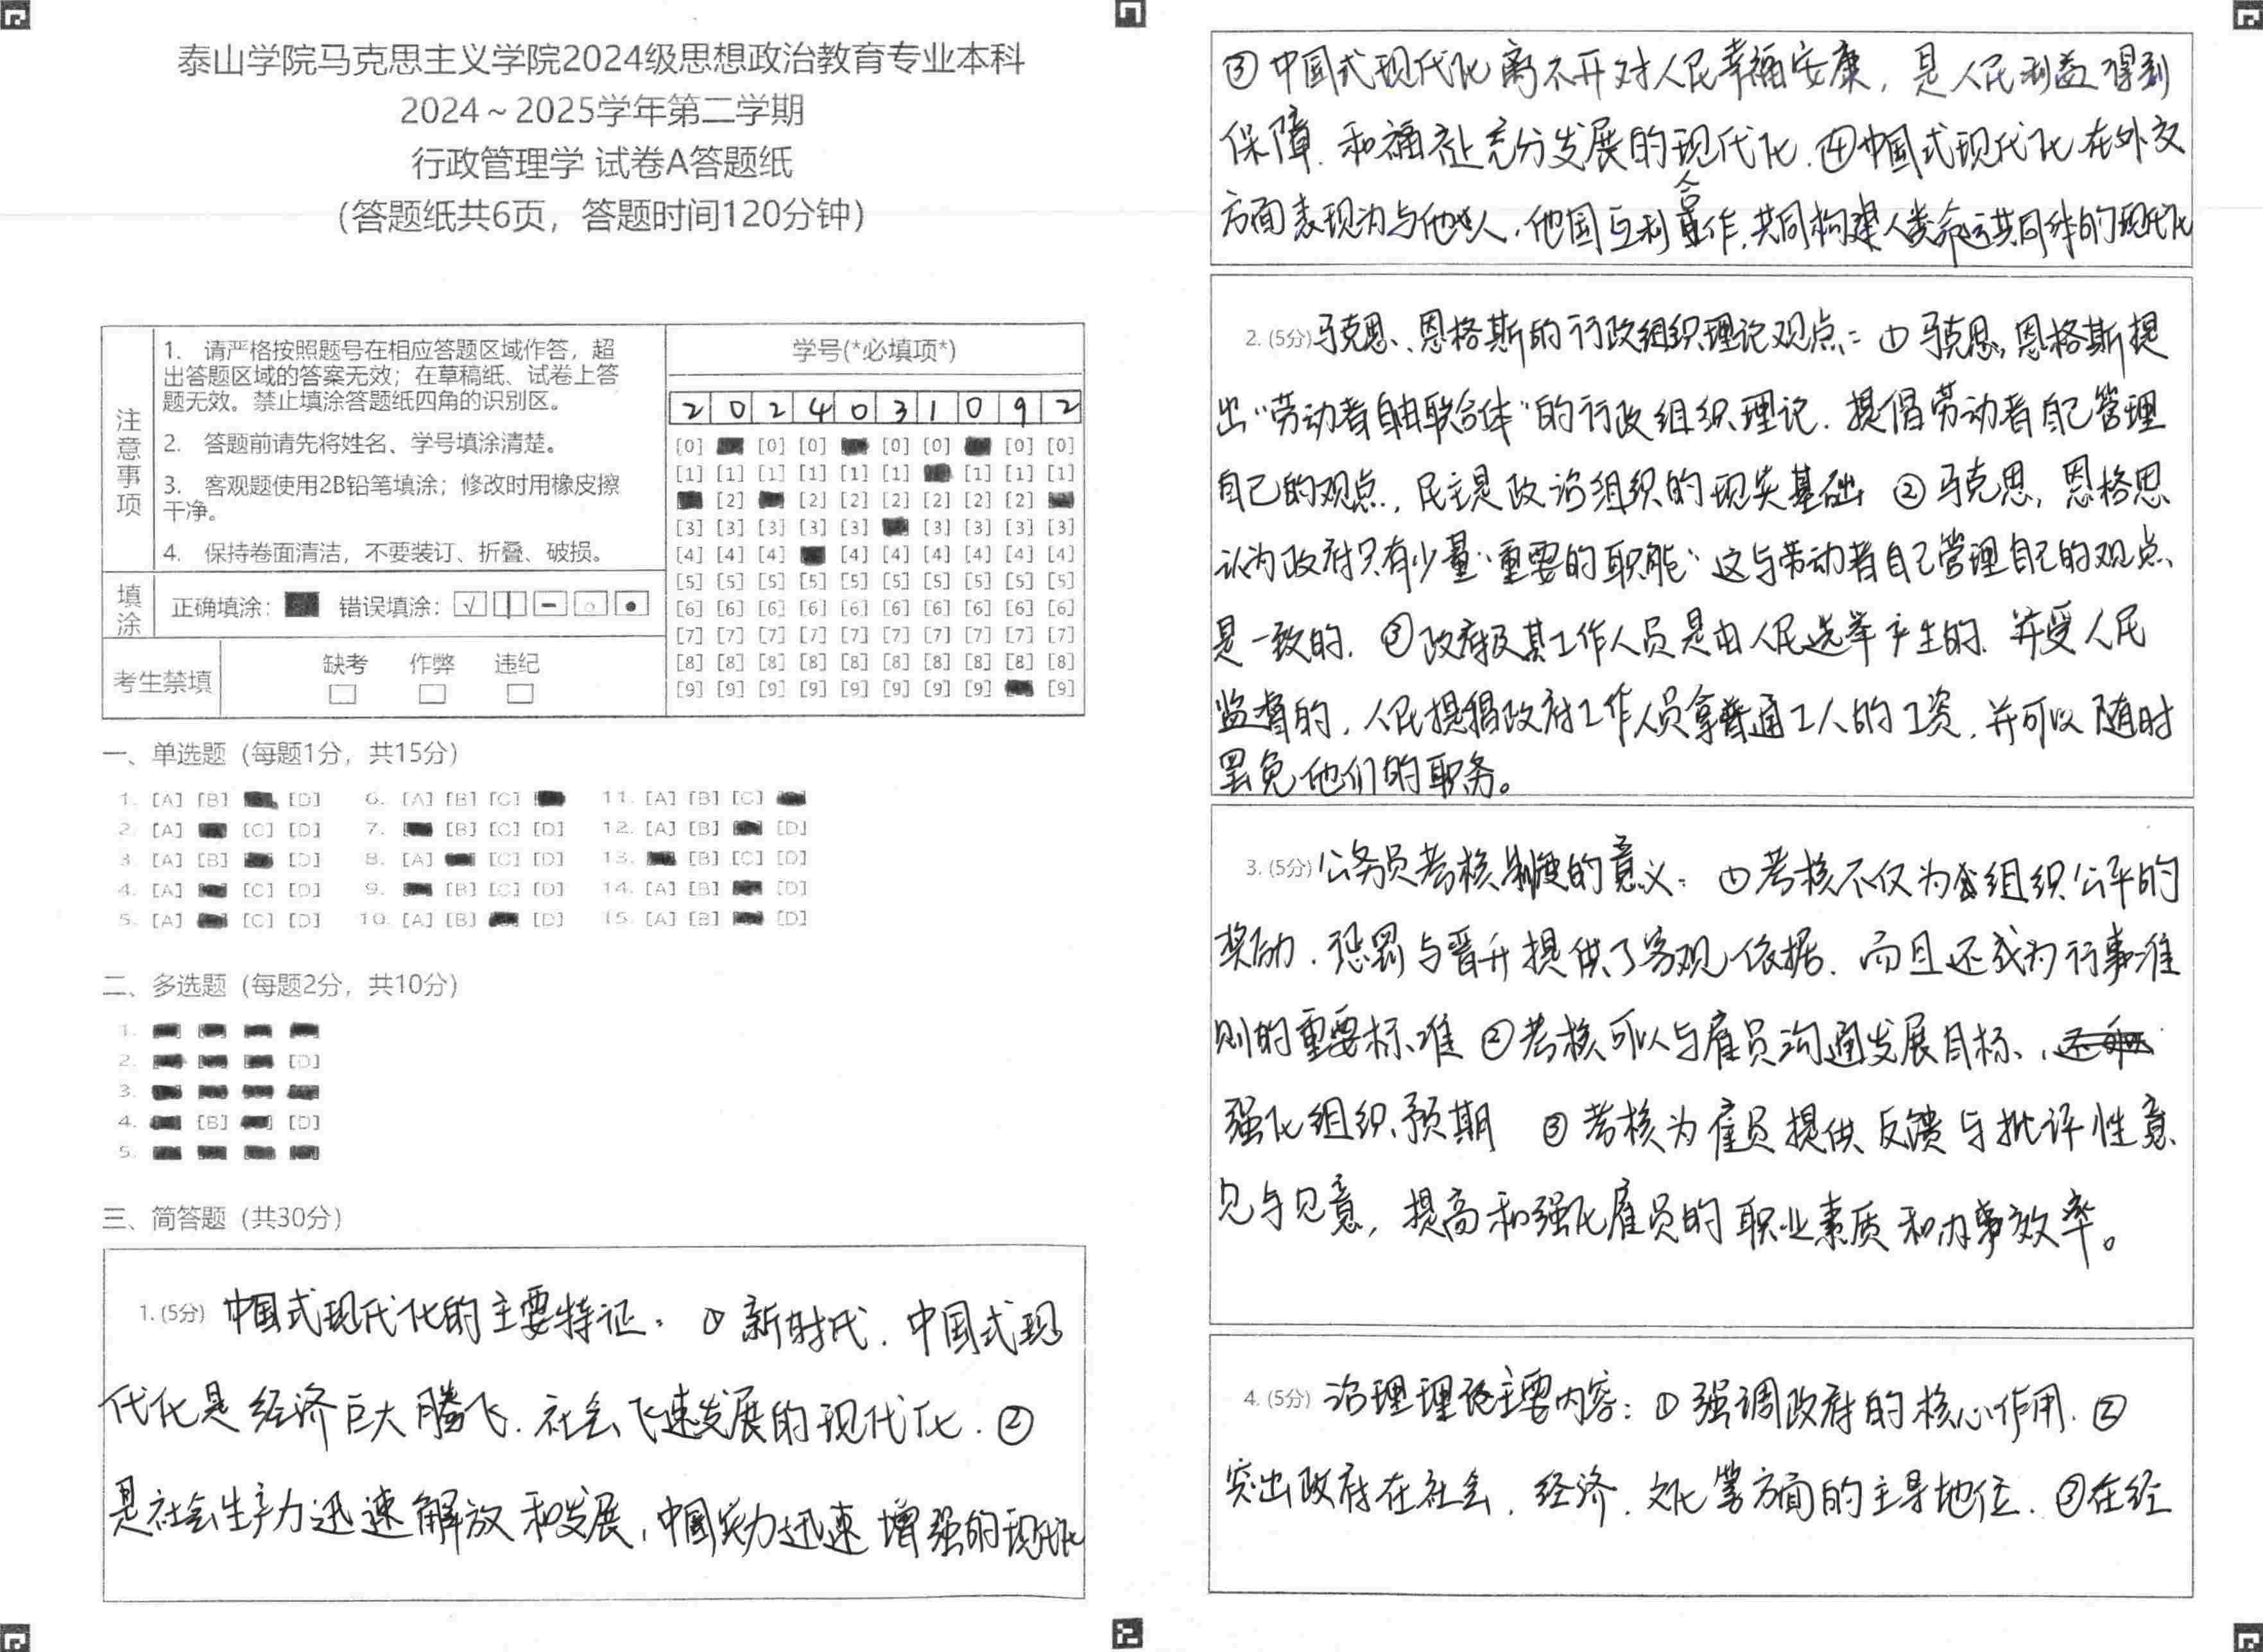 泰山学院马克思主义学院2024级思想政治教育专业本科
2024～2025学年第二学期
行政管理学 试卷A答题纸
（答题纸共6页，答题时间120分钟）
注意事项
1. 请严格按照题号在相应答题区域作答，超
出答题区域的答案无效；在草稿纸、试卷上答
题无效。禁止填涂答题纸四角的识别区。
2. 答题前请先将姓名、学号填涂清楚。
3. 客观题使用2B铅笔填涂；修改时用橡皮擦
干净。
4. 保持卷面清洁，不要装订、折叠、破损。
填涂
正确填涂： 错误填涂：
考生禁填
缺考 作弊 违纪
学号(*必填项*)
2 0 2 4 0 3 1 0 9 2
[0] [0] [0] [0] [0] [0] [0]
[1] [1] [1] [1] [1] [1] [1] [1] [1]
[2] [2] [2] [2] [2] [2] [2]
[3] [3] [3] [3] [3] [3] [3] [3] [3]
[4] [4] [4] [4] [4] [4] [4] [4] [4]
[5] [5] [5] [5] [5] [5] [5] [5] [5] [5]
[6] [6] [6] [6] [6] [6] [6] [6] [6] [6]
[7] [7] [7] [7] [7] [7] [7] [7] [7] [7]
[8] [8] [8] [8] [8] [8] [8] [8] [8] [8]
[9] [9] [9] [9] [9] [9] [9] [9] [9]
一、单选题（每题1分，共15分）
1. [A] [B] [D] 6. [A] [B] [C] 11. [A] [B] [C]
2. [A] [C] [D] 7. [B] [C] [D] 12. [A] [B] [D]
3. [A] [B] [D] 8. [A] [C] [D] 13. [B] [C] [D]
4. [A] [C] [D] 9. [B] [C] [D] 14. [A] [B] [D]
5. [A] [C] [D] 10. [A] [B] [D] 15. [A] [B] [D]
二、多选题（每题2分，共10分）
1.
2. [D]
3.
4. [B] [D]
5.
三、简答题（共30分）
1. (5分) 中国式现代化的主要特征：①新时代．中国式现
代化是经济巨大腾飞．社会飞速发展的现代化．②
是社会生产力迅速解放和发展，中国实力迅速增强的现代化
③中国式现代化离不开对人民幸福安康，是人民利益得到
保障．和福祉充分发展的现代化．④中国式现代化在外交
方面表现为与他人，他国互利合作，共同构建人类命运共同体的现代化
2. (5分) 马克思、恩格斯的行政组织理论观点：①马克思，恩格斯提
出“劳动者自由联合体”的行政组织理论．提倡劳动者自己管理
自己的观点，民主是政治组织的现实基础 ②马克思，恩格思
认为政府只有少量“重要的职能”这与劳动者自己管理自己的观点
是一致的．③政府及其工作人员是由人民选举产生的．并受人民
监督的，人民提倡政府工作人员拿普通工人的工资，并可以随时
罢免他们的职务。
3. (5分) 公务员考核制度的意义：①考核不仅为组织公平的
奖励．惩罚与晋升提供了客观依据．而且还成为行事准
则的重要标准 ②考核可以与雇员沟通发展目标、
强化组织预期 ③考核为雇员提供反馈与批评性意
见与见意，提高和强化雇员的职业素质和办事效率。
4. (5分) 治理理论主要内容：①强调政府的核心作用．②
突出政府在社会．经济．文化等方面的主导地位．③在经